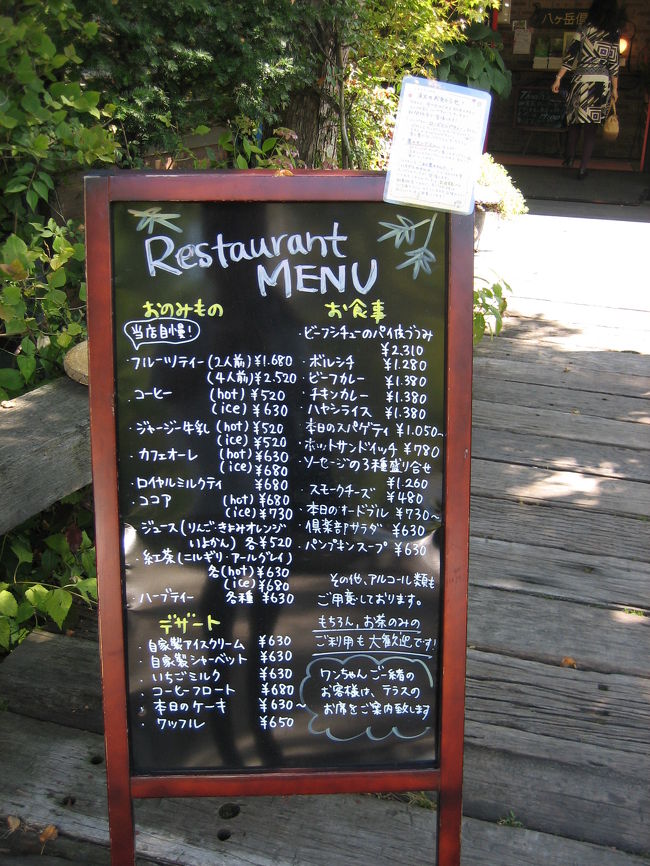 Restaurant
MENU
おのみもの
当店自慢!
・フルーツティー(2人前)¥1.680
(4人前)¥2.520
・コーヒー (hot) ¥520
(ice) ¥630
・ジャージー牛乳 (hot) ¥520
(ice) ¥520
・カフェオーレ (hot) ¥630
(ice) ¥680
・ロイヤルミルクティ ¥680
・ココア (hot) ¥680
(ice) ¥730
・ジュース(りんご・きよみオレンジ
いよかん) 各¥520
・紅茶(ニルギリ・アールグレイ)
各(hot) ¥630
(ice) ¥680
・ハーブティー 各種 ¥630
デザート
・自家製アイスクリーム ¥630
・自家製シャーベット ¥630
・いちごミルク ¥630
・コーヒーフロート ¥680
・本日のケーキ ¥630~
・ワッフル ¥650
お食事
・ビーフシチューのパイ皮づつみ
¥2,310
・ボルシチ ¥1.280
・ビーフカレー ¥1.380
・チキンカレー ¥1.380
・ハヤシライス ¥1.380
・本日のスパゲティ ¥1.050~
・ホットサンドイッチ ¥780
・ソーセージの3種盛り合せ
¥1.260
・スモークチーズ ¥480
・本日のオードブル ¥730~
・倶楽部サラダ ¥630
・パンプキンスープ ¥630
その他、アルコール類も
ご用意しております。
もちろん、お茶のみの
ご利用も大歓迎です!
ワンちゃんご一緒の
お客様は、テラスの
お席をご案内致します
八ヶ岳倶